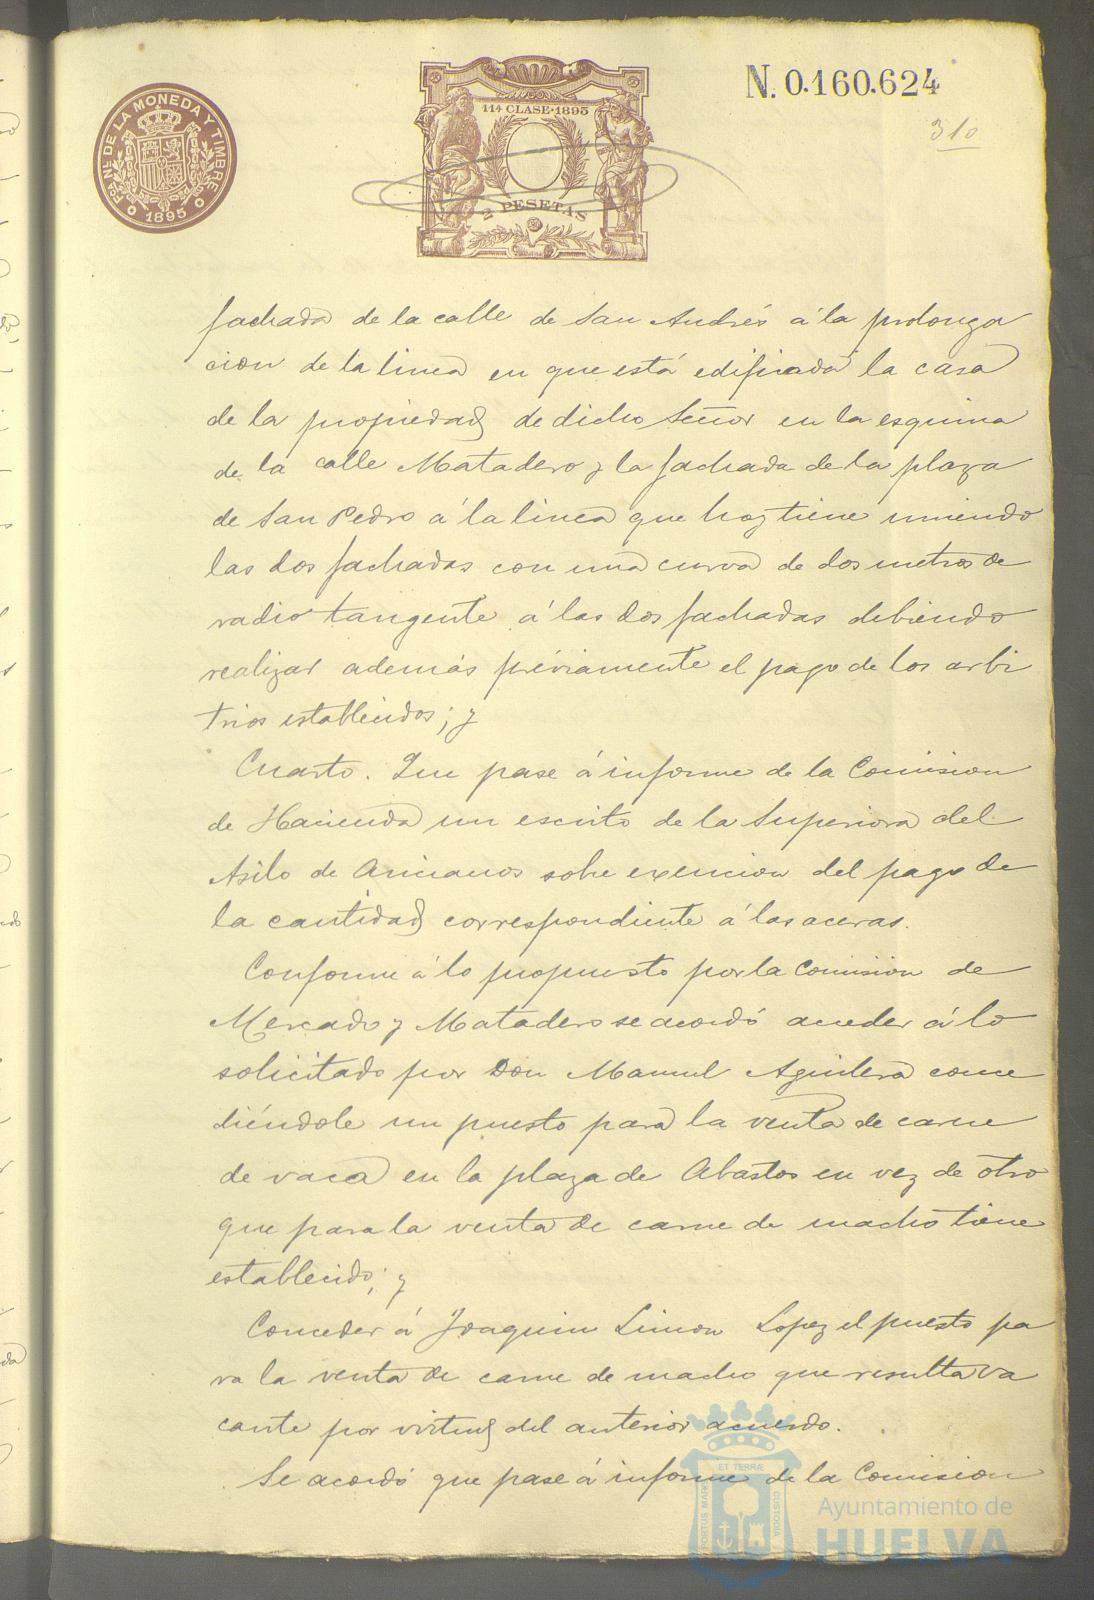 N. 0.160.624
FCA. NL. DE LA MONEDA Y TIMBRE
1895
11ª CLASE·1895
2 PESETAS
310
fachada de la calle de San Andrés á la prolonga
cion de la linea en que está edificada la casa
de la propiedad de dicho Señor en la esquina
de la calle Matadero y la fachada de la plaza
de San Pedro á la linea que hoy tiene uniendo
las dos fachadas con una curva de dos metros de
radio tangente á las dos fachadas debiendo
realizar además préviamente el pago de los arbi
trios establecidos; y
Cuarto. Que pase á informe de la Comision
de Hacienda un escrito de la Superiora del
Asilo de Ancianos sobre exencion del pago de
la cantidad correspondiente á las aceras.
Conforme á lo propuesto por la Comision de
Mercado y Matadero se acordó acceder á lo
solicitado por Don Manuel Aguilera conce
diéndole un puesto para la venta de carne
de vaca en la plaza de Abastos en vez de otro
que para la venta de carne de macho tiene
establecido; y
Conceder á Joaquin Limon Lopez el puesto pa
ra la venta de carne de macho que resulta va
cante por virtud del anterior acuerdo.
Se acordó que pase á informe de la Comision
PORTUS MARIS ET TERRÆ CUSTODIA
Ayuntamiento de
HUELVA